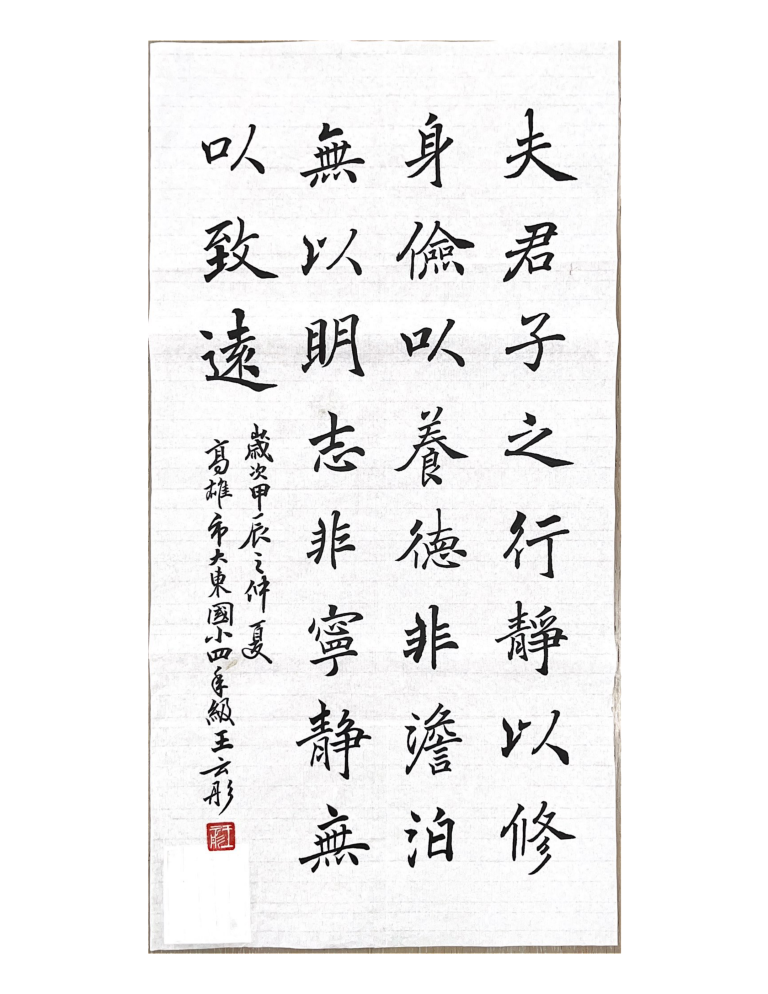 夫君子之行靜以修
身儉以養德非澹泊
無以明志非寧静無
以致遠
歲次甲辰之仲夏
高雄市大東國小四年級王云彤